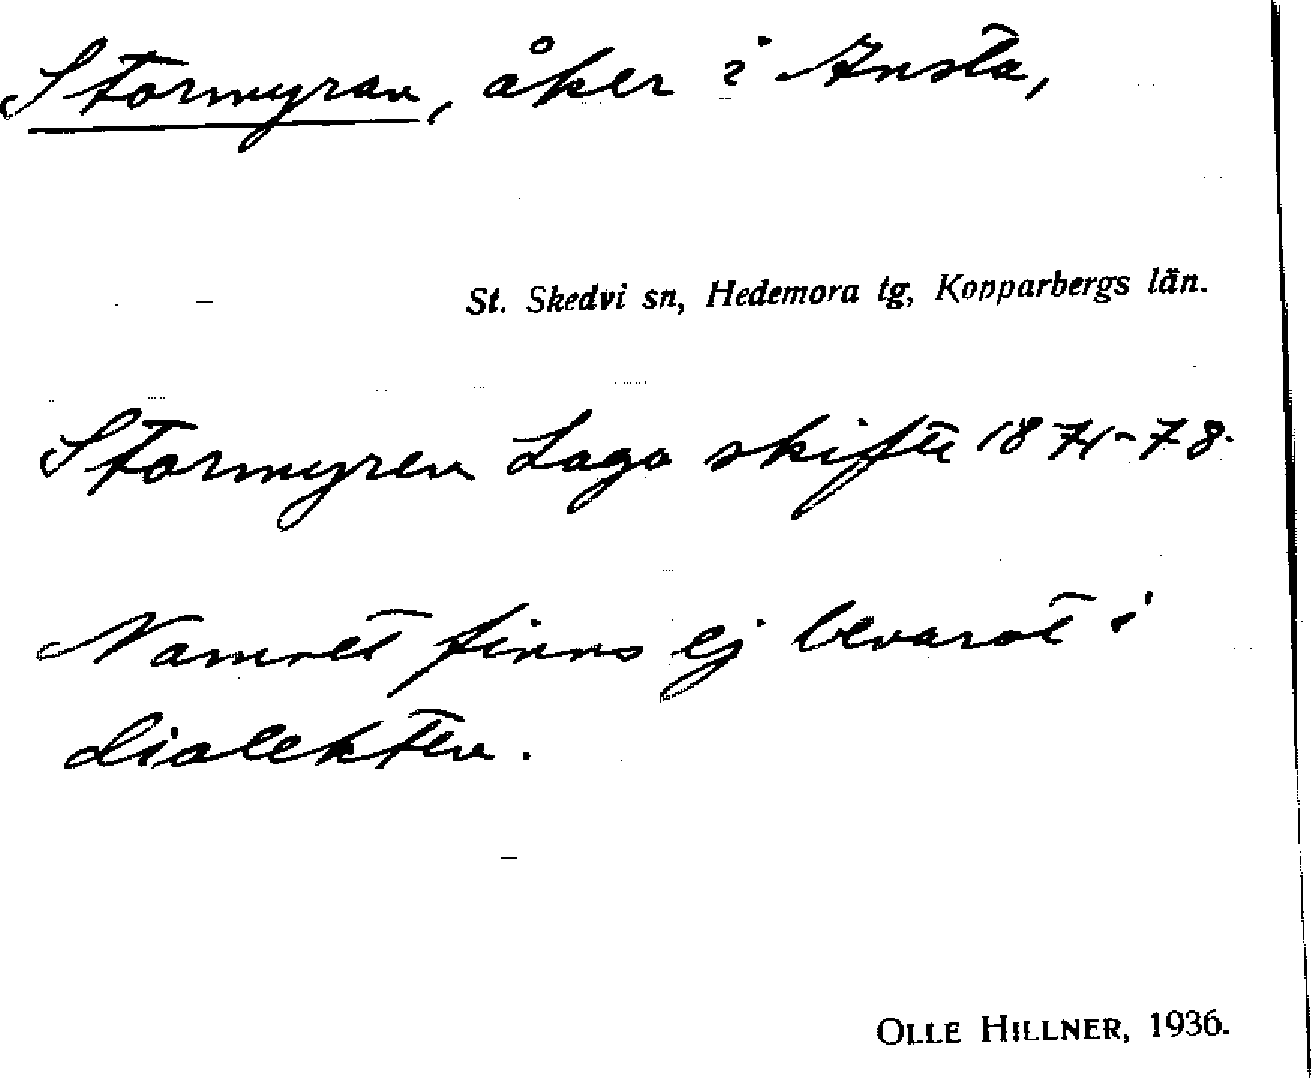 Stormyran, åker i Ansta,
St. Skedvi sn, Hedemora tg, Kopparbergs län.
Stormyren Laga skifte 1874-78.
Namnet finns ej bevarat i
dialekten.
OLLE HILLNER, 1936.